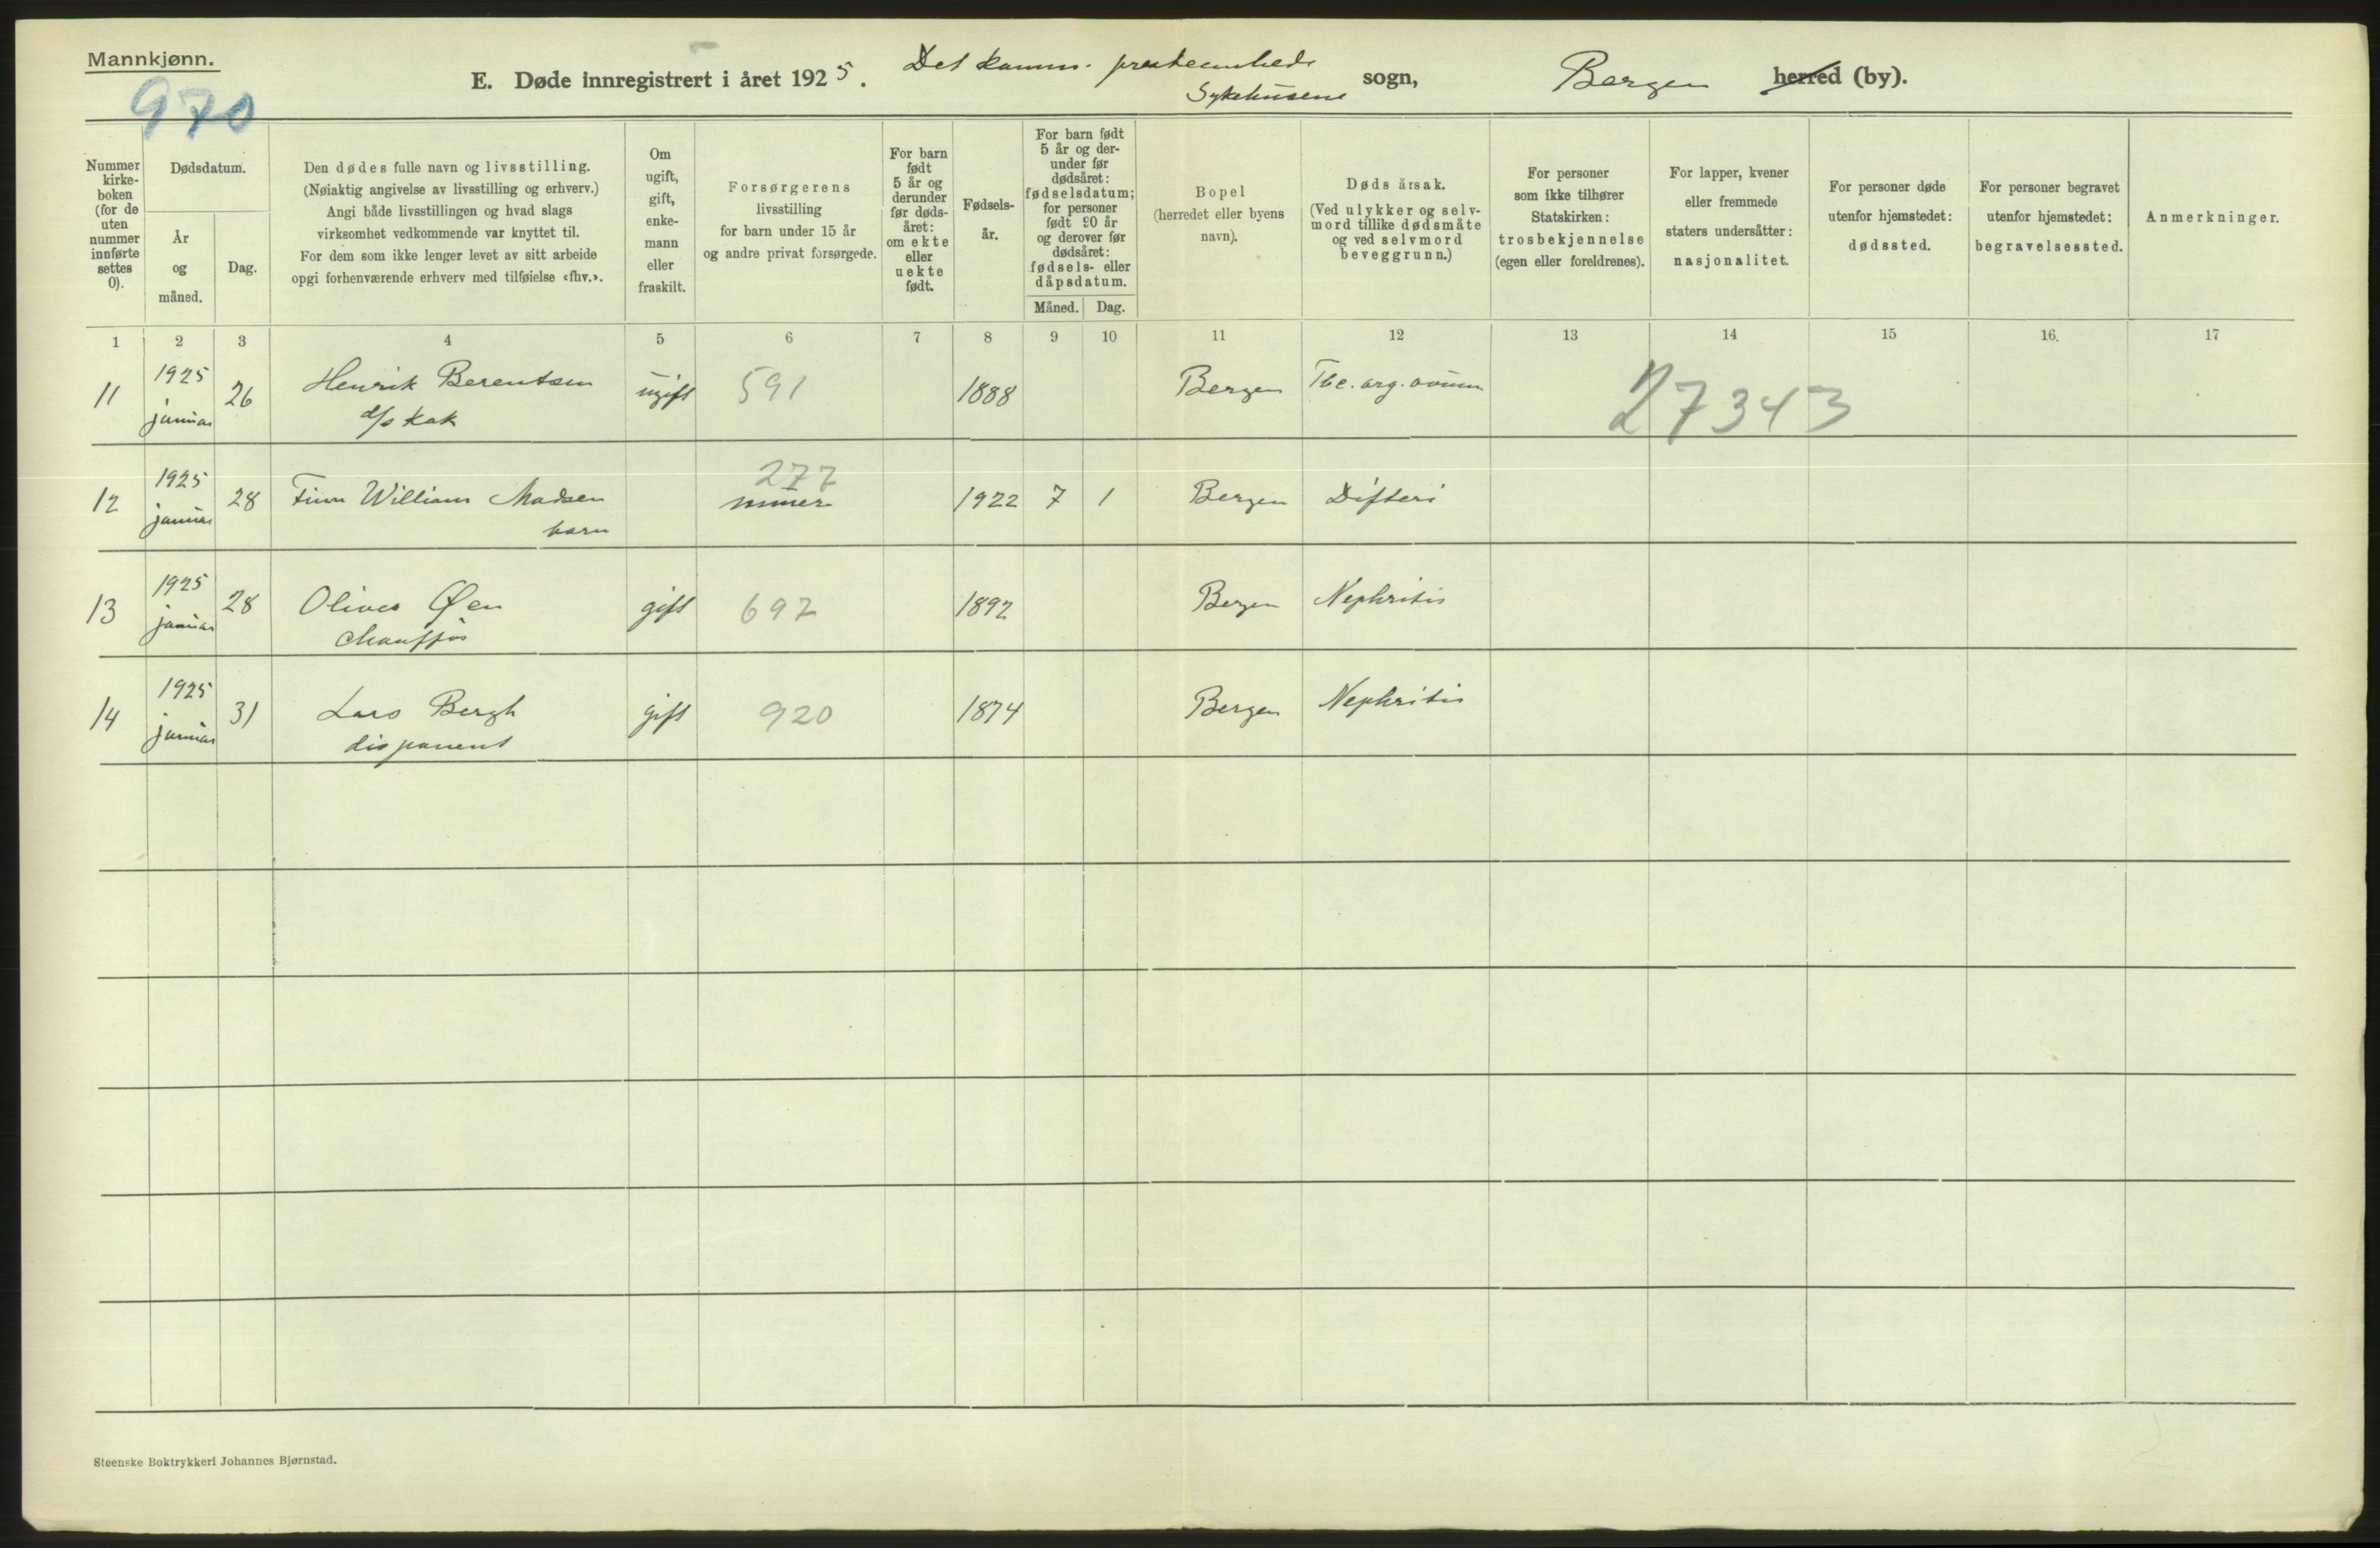 Mannkjønn.
970
E. Døde innregistrert i året 1925.
Det komm. presteembede
Sykehusene
sogn,
Bergen
herred (by).
Nummer
kirke-
boken
(for de
uten
nummer
innførte
settes
0).
Dødsdatum.
År
og
måned.
Dag.
Den dødes fulle navn og livsstilling.
(Nøiaktig angivelse av livsstilling og erhverv.)
Angi både livsstillingen og hvad slags
virksomhet vedkommende var knyttet til.
For dem som ikke lenger levet av sitt arbeide
opgi forhenværende erhverv med tilføielse «fhv.».
Om
ugift,
gift,
enke-
mann
eller
fraskilt.
Forsørgerens
livsstilling
for barn under 15 år
og andre privat forsørgede.
For barn
født
5 år og
derunder
før døds-
året:
om ekte
eller
uekte
født.
Fødsels-
år.
For barn født
5 år og der-
under før
dødsåret:
fødselsdatum;
for personer
født 90 år
og derover før
dødsåret:
fødsels- eller
dåpsdatum.
Måned. Dag.
Bopel
(herredet eller byens
navn).
Dødsårsak.
(Ved ulykker og selv-
mord tillike dødsmåte
og ved selvmord
beveggrunn.)
For personer
som ikke tilhører
Statskirken:
trosbekjennelse
(egen eller foreldrenes).
For lapper, kvener
eller fremmede
staters undersåtter:
nasjonalitet.
For personer døde
utenfor hjemstedet:
dødssted.
For personer begravet
utenfor hjemstedet:
begravelsessted.
Anmerkninger.
1 2 3 4 5 6 7 8 9 10 11 12 13 14 15 16. 17
11 1925 januar 26 Henrik Berentsen ugift 591 1888 Bergen Tbc. org. 27343
d/s kok
12 1925 januar 28 Finn William Madsen 277 murer 1922 7 1 Bergen Difteri
barn
13 1925 januar 28 Oliver Øen gift 697 1892 Bergen Nephritis
chauffør
14 1925 januar 31 Lars Bergh gift 920 1874 Bergen Nephritis
disponent
Steenske Boktrykkeri Johannes Bjørnstad.